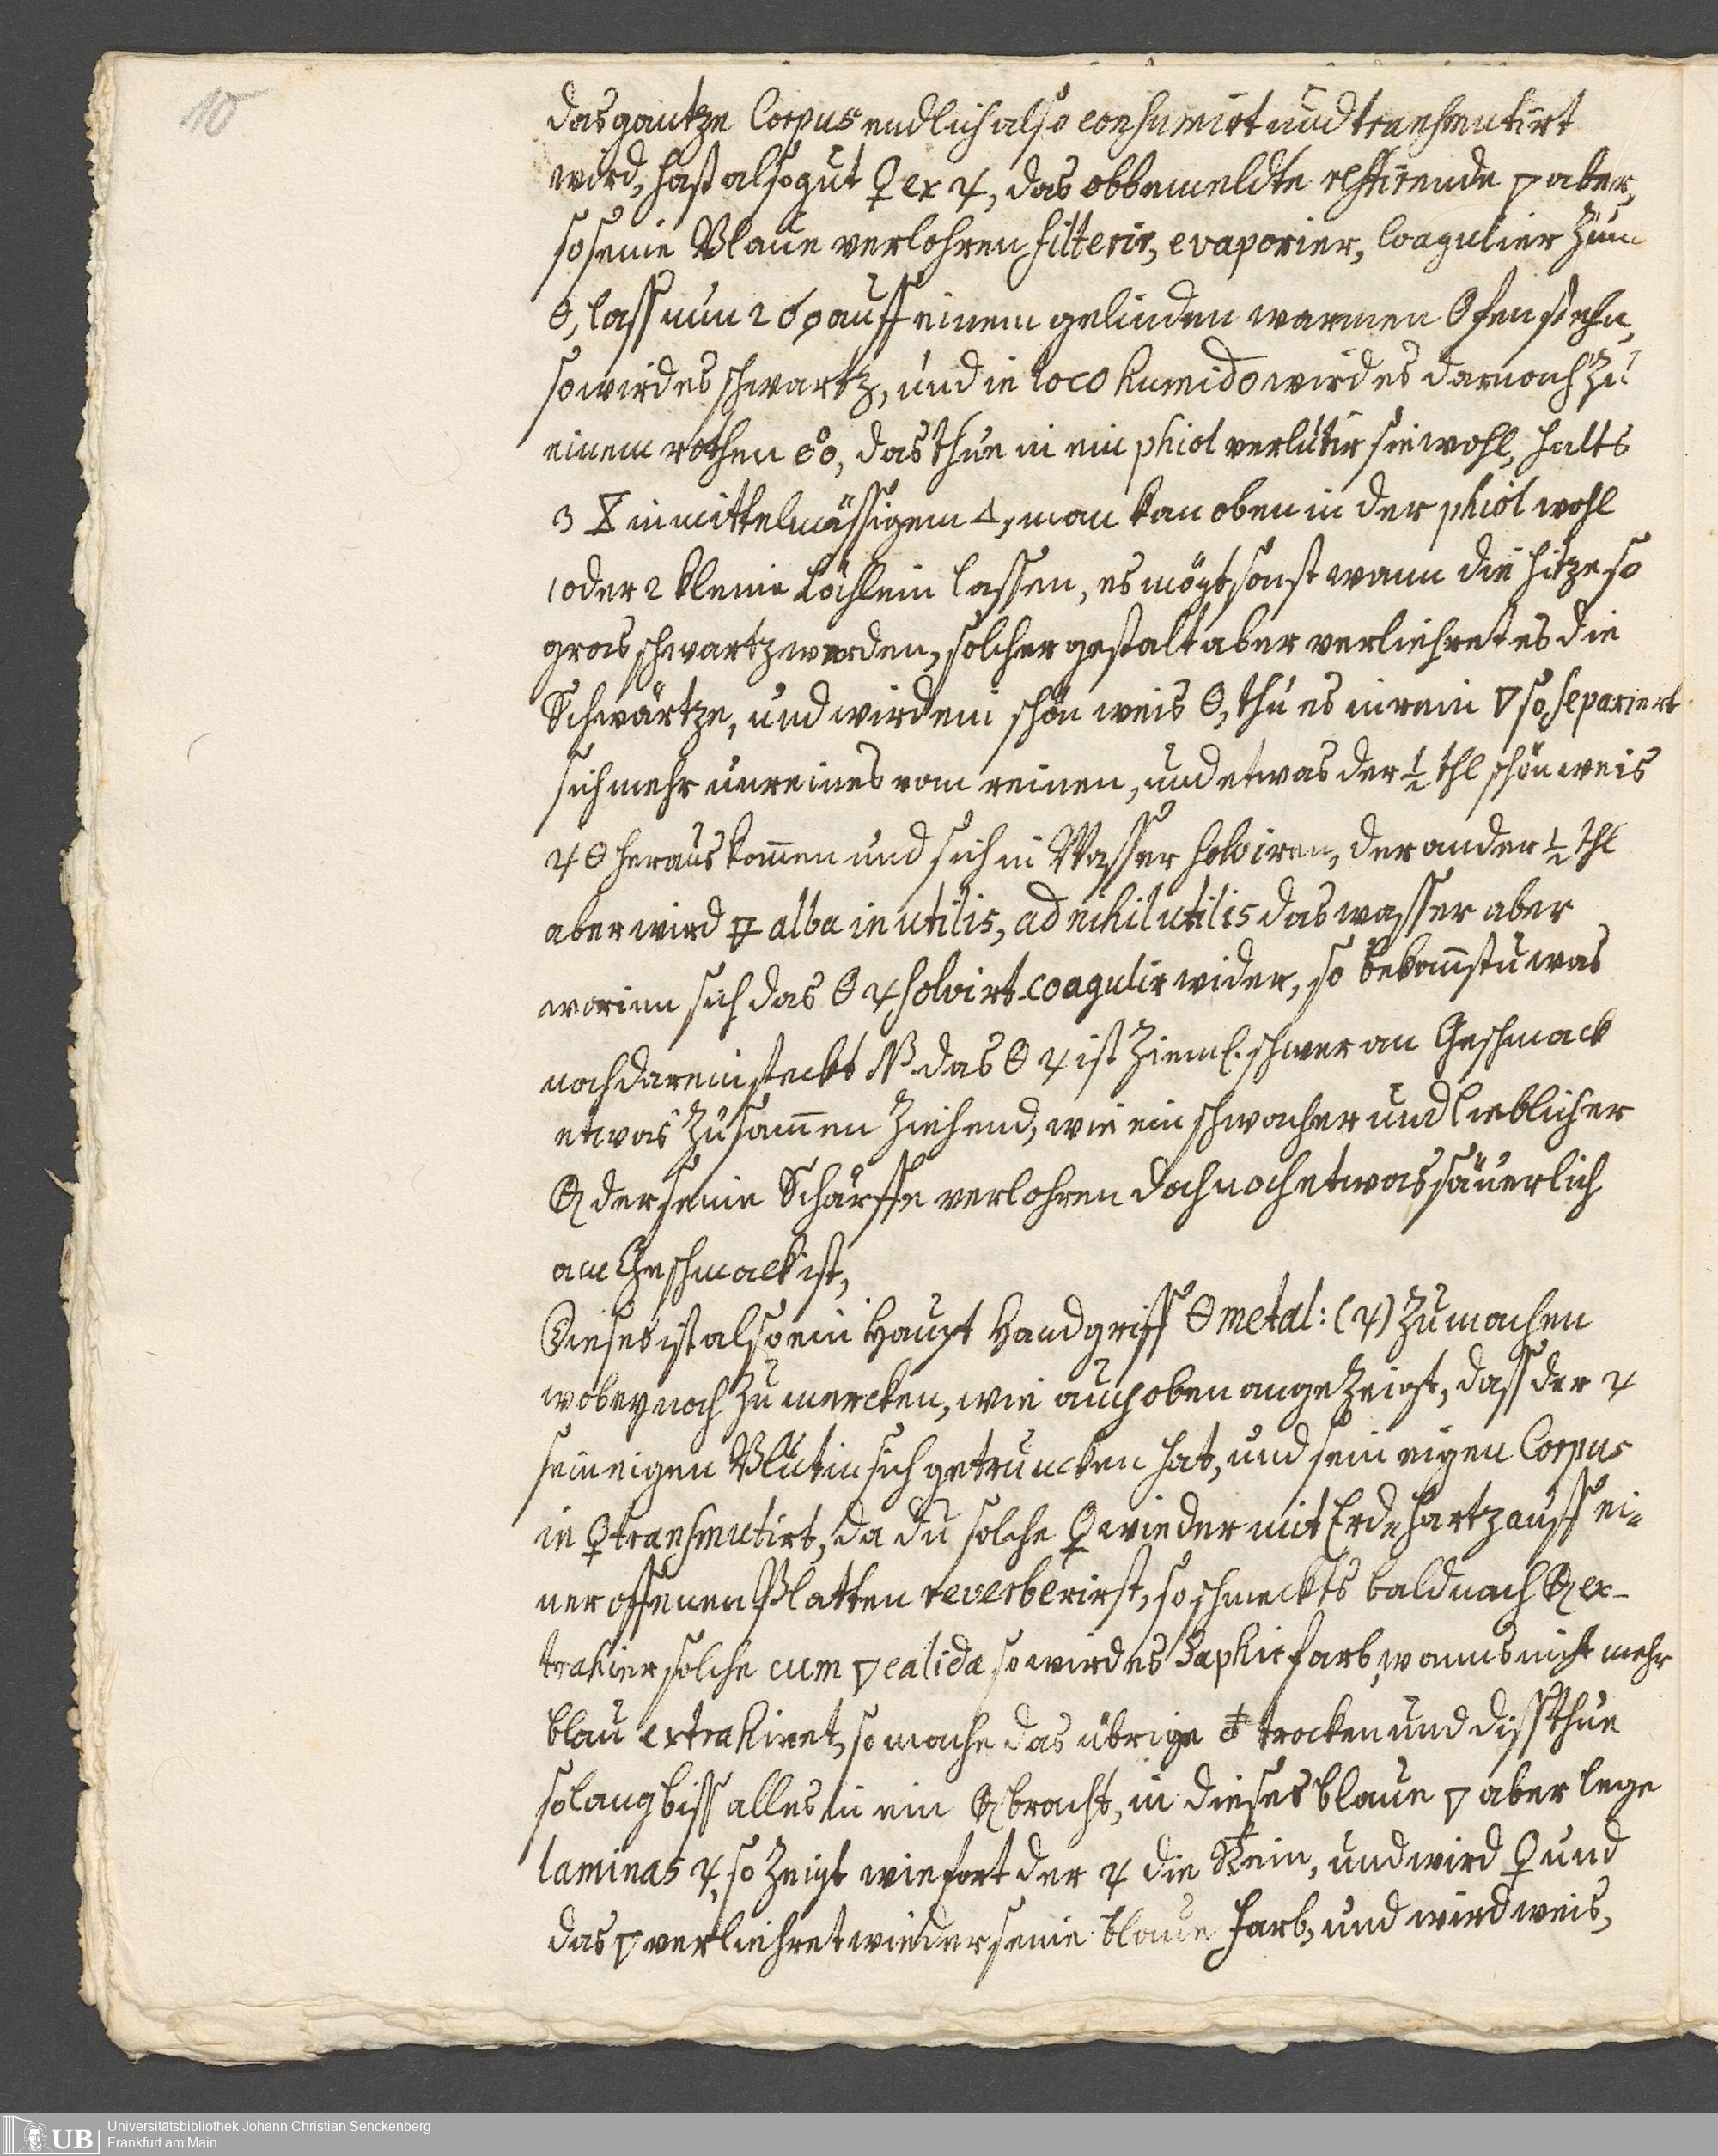 10
das gantze Corpus endlich also consumirt und transmutirt
wird, hast also gut ♀ ex ♃, das obbemeldte restirende ▽ aber,
so seine Blaue verlohren filterir, evaporier, Coagulier zum
🜔, lass nun auff einem gelinden warmen Ofen stehn,
so wird es schwartz, und in loco humido wird es darnach zu
einem rothen, das thue in ein phiol verlutir sie wohl, halts
3 in mittelmässigem △, man kan oben in der phiol wohl
1 oder 2 kleine Löchlein lassen, es mögt sonst wann die hitze so
gros schwartz werden, solcher gestalt aber verliehret es die
Schwärtze, und wird ein schön weis 🜔, thu es in rein ▽ so separiert
sich mehr unreines vom reinen, und etwas der ½ thl schön weis
♃ 🜔 heraus kom̄en und sich in Wasser solviren, der ander ½ thl
aber wird 🜃 alba inutilis, ad nihil utilis das wasser aber
worinn sich das 🜔 ♃ solvirt coagulir wider, so bekom̄stu was
noch darein steckt NB. das 🜔 ♃ ist zieml. schwer am Geschmack
etwas zusam̄en ziehend, wie ein schwacher und lieblicher
🜖 der seine Schärffe verlohren doch noch etwas säuerlich
am Geschmack ist,
Dieses ist also ein Haupt Handgriff 🜔 metal: (♃) zu machen
wobey noch zu mercken, wie auch oben angezeigt, dass der ♃
sein eigen Blut in sich getruncken hat, und sein eigen Corpus
in ♀ transmutirt, da du solche ♀ wieder mit Erdehartz auff ei=
ner offenen Platten reverberirst, so schmeckts bald nach 🜖 ex-
trahier solche cum ▽ calida so wird es Saphir farb, wanns nicht mehr
blau extrahiret, so mache das übrige trocken und diss thue
solang biss alles in ein 🜖 bracht, in dieses blaue ▽ aber lege
laminas ♃, so zeigt wiefort der ♃ die ein, und wird ♀ und
das ▽ verliehret wieder seine blaue Farb, und wird weis,
Universitätsbibliothek Johann Christian Senckenberg
Frankfurt am Main
UB